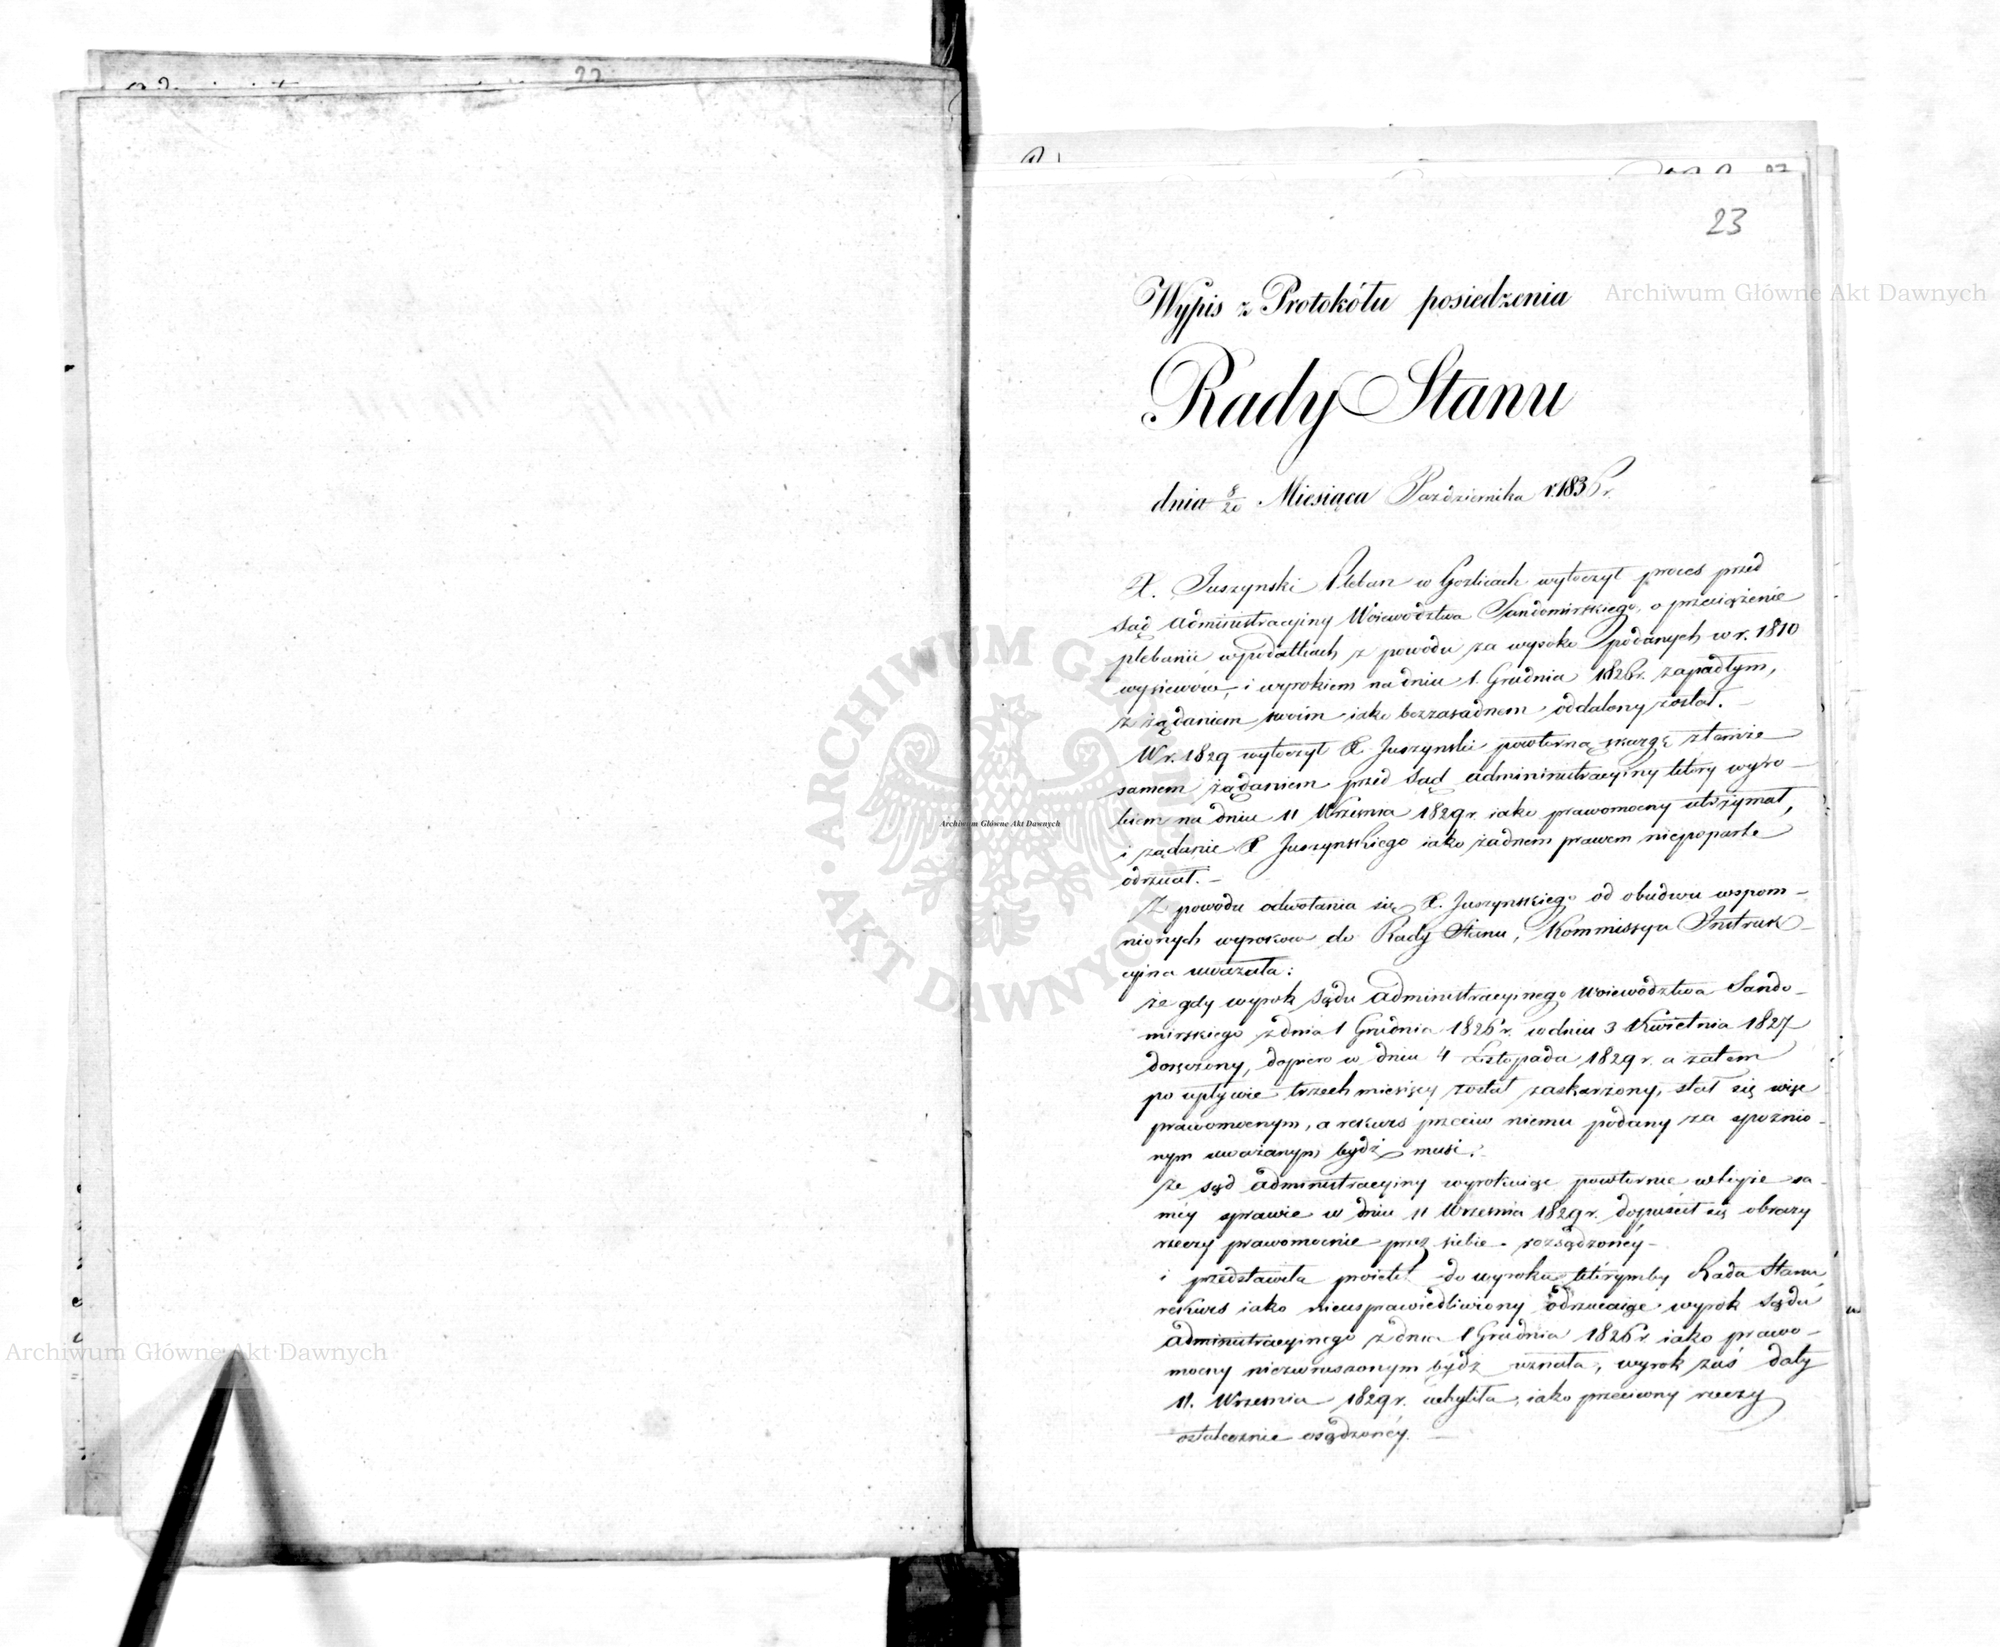 22
23
Wypis z Protokółu posiedzenia
Rady Stanu
dnia 8/20 Miesiąca Października r. 1836 r.
X. Juszynski Pleban w Gorlicach wytoczył proces przed
Sąd Administracyjny Woiewództwa Sandomirskiego, o przeciążenie
plebanii w podatkach z powodu za wysoko podanych w r. 1810
wysiewów, i wyrokiem na dniu 1. Grudnia 1826 r. zapadłym,
z żądaniem swoim iako bezzasadnem oddalony został. –
W r. 1829 wytoczył X Juszynski powtorną skargę z temże
samem żądaniem przed Sąd administracyiny ktory wyro-
kiem na dniu 11 Września 1829 r. iako prawomocny utrzymał,
i żądanie X Juszynskiego iako żadnem prawem niepoparte
odrzucał. –
Z powodu odwołania się X. Juszynskiego od obudwu wspom-
nionych wyrokow do Rady Stanu, Kommissya Instruk-
cyina uważała:
że gdy wyrok Sądu administracyinego Woiewództwa Sando-
mirskiego z dnia 1 Grudnia 1826 r. w dniu 3 Kwietnia 1827
doręczony, dopiero w dniu 4 Listopada 1829 r. a zatem
po upływie trzech miesięcy został zaskarżony, stał się więc
prawomocnym, a rekurs przeciw niemu podany za spoźnio-
nym uważanym bydź musi.
że sąd administracyiny wyrokuiąc powtornie w teyże sa-
méy sprawie w dniu 11 Września 1829 r. dopuścił się obrazy
rzeczy prawomocnie przez siebie rozsądzonéy –
i przedstawiła proiekt do wyroku którymby Rada Stanu,
rekurs iako nieusprawiedliwiony odrzucaiąc wyrok Sądu
administracyinego z dnia 1 Grudnia 1826 r. iako prawo-
mocny niezwruszonym bydź uznała, wyrok zaś daty
11. Września 1829 r. uchyliła, iako przeciwny rzeczy
ostatecznie osądzonéy. –
Archiwum Główne Akt Dawnych
Archiwum Główne Akt Dawnych
Archiwum Główne Akt Dawnych
ARCHIWUM GŁÓWNE AKT DAWNYCH